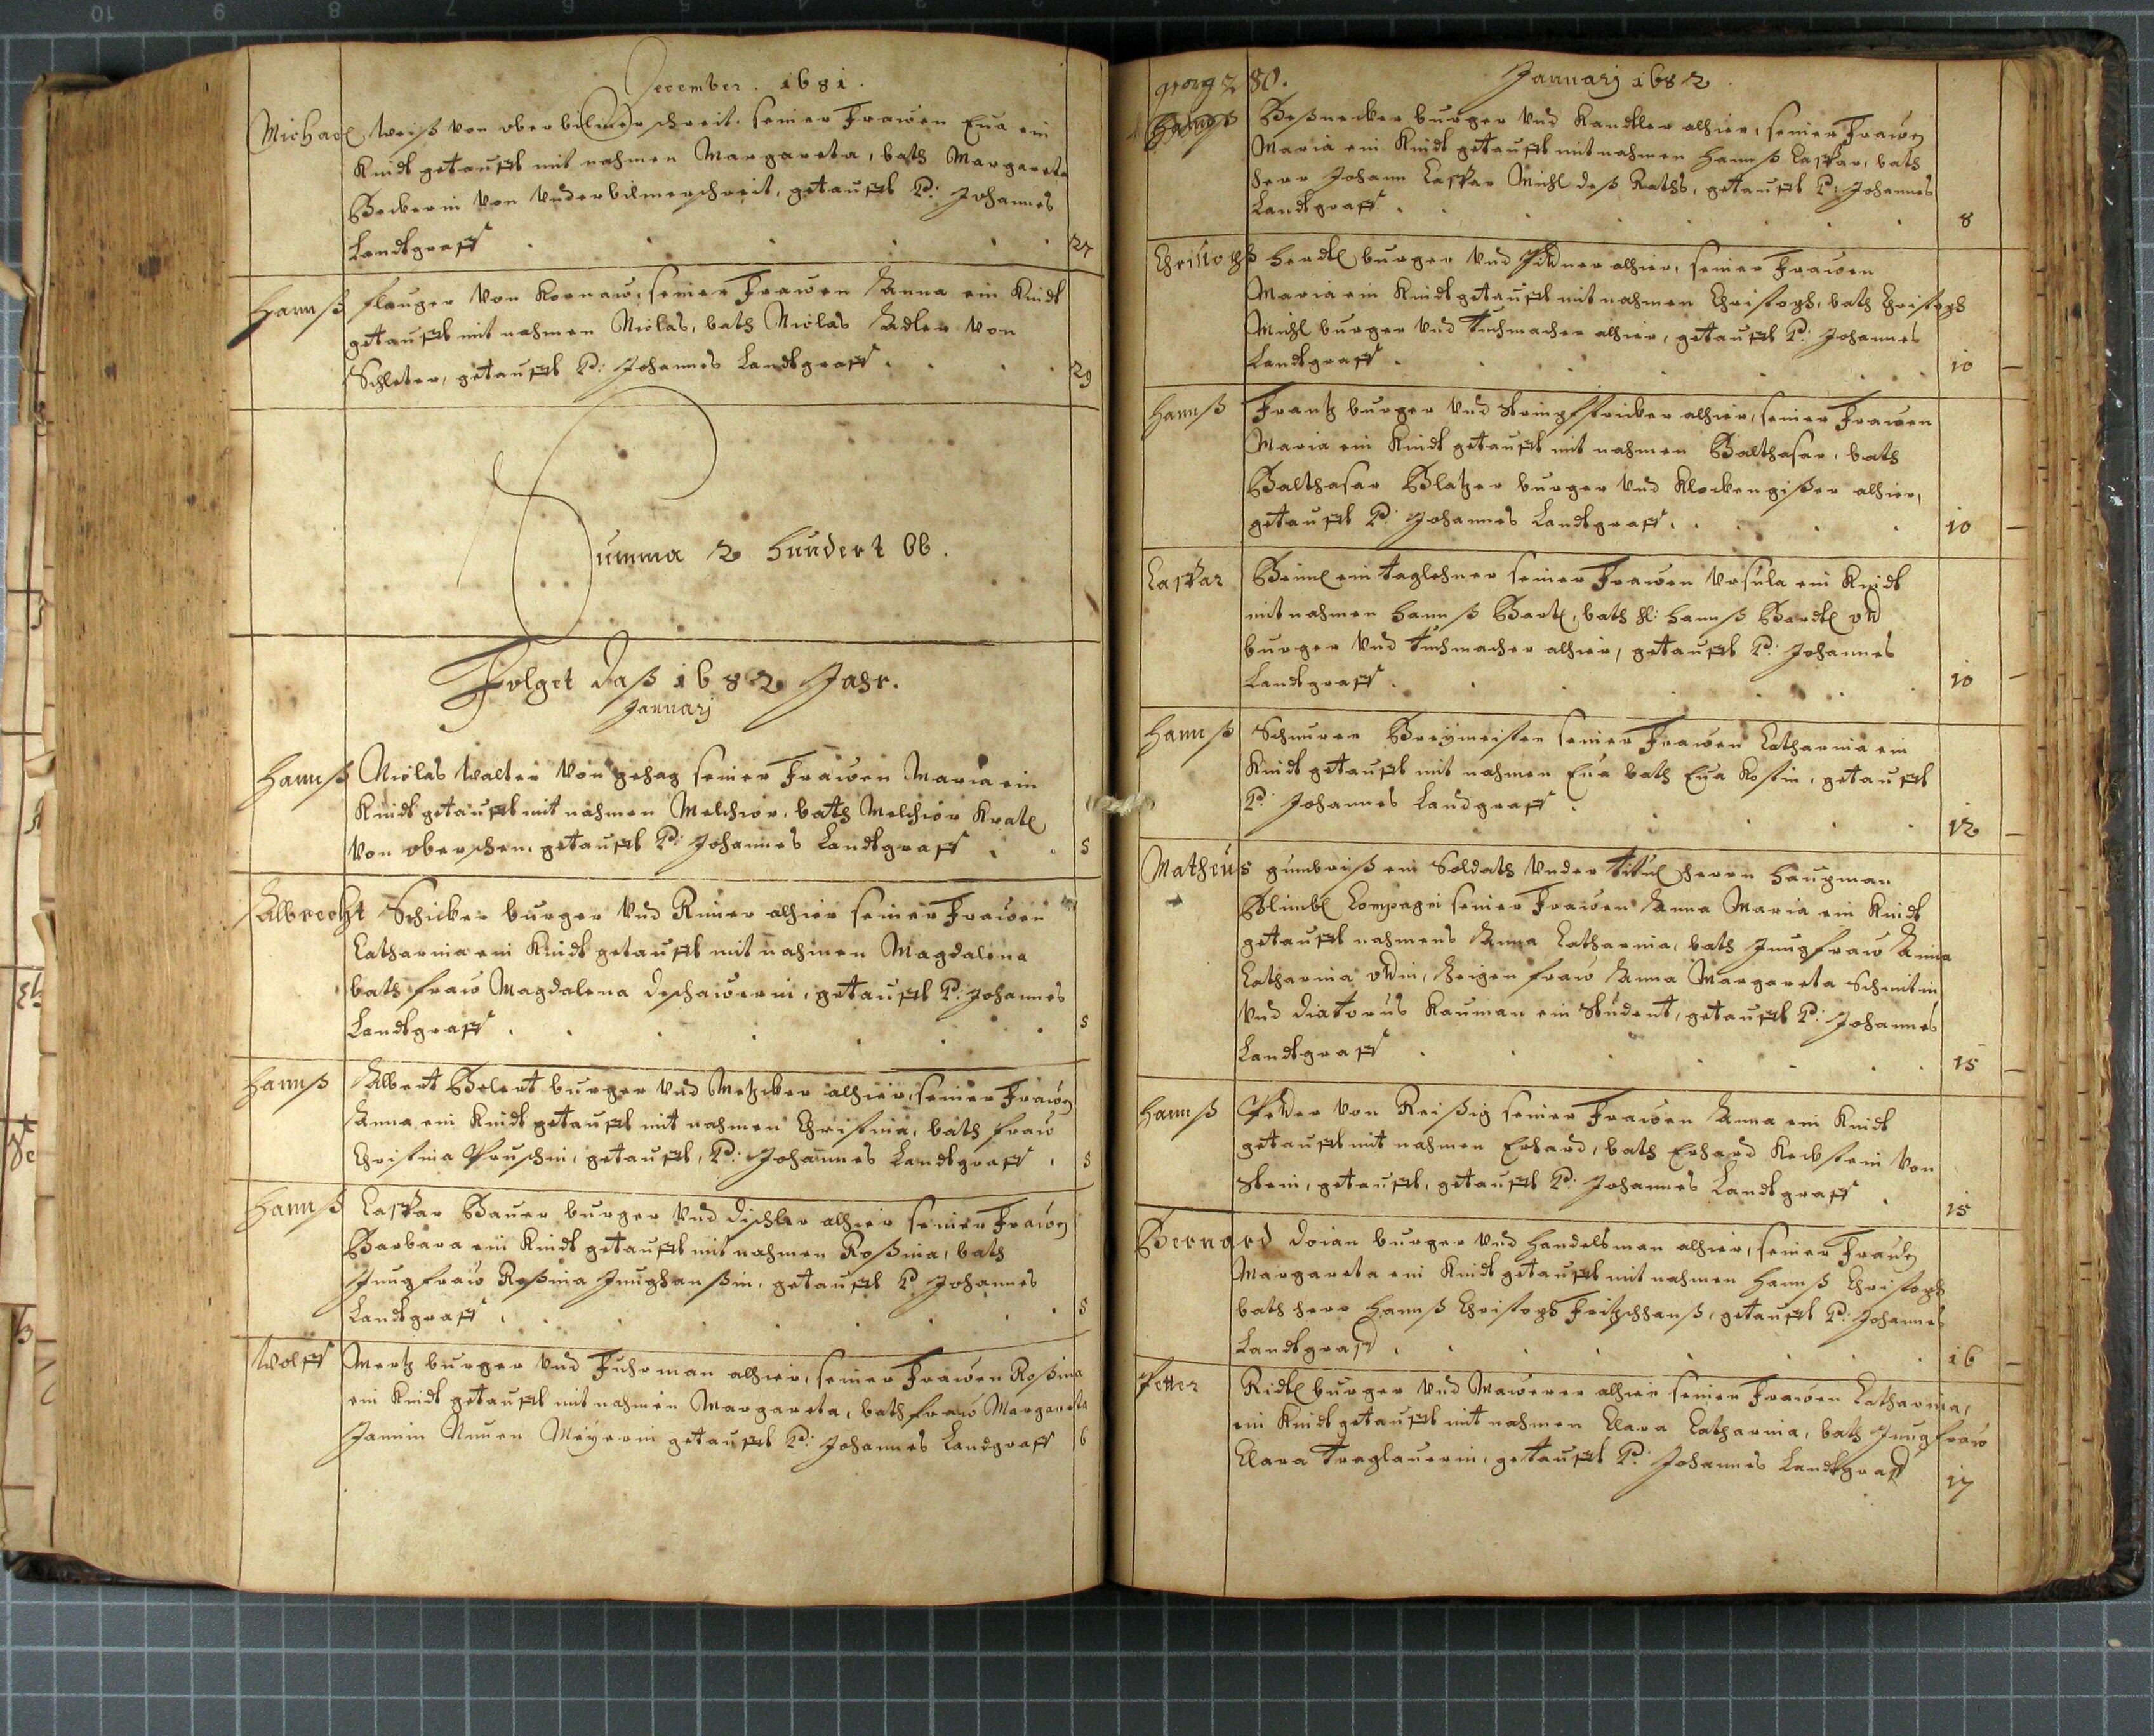 December. 1681.
Michael Weiß von oberbilmerschreit. seiner Frawen Eua ein
Kindt getaufft mit nahmen Margareta, bath Margareta
Beckerin von Vnderbilmerschreit, getaufft P: Johannes
Landtgraff
27
Hannß von Kornaw, seiner Frawen Anna ein Kindt
getaufft mit nahmen Niclas, bath Niclas Adler von
Schleter, getaufft P: Johannes Landtgraff
29
Summa 2 hundert 66.
Folget daß 1682 Jahr.
Januarj
Hannß Niclas Walter von gehag seiner Frawen Maria ein
Kindt getaufft mit nahmen Melchior, bath Melchior Kratl
von getaufft P: Johannes Landtgraff
5
Albrecht Schicker burger vnd Rimer alhier seiner Frawen
Catharina ein Kindt getaufft mit nahmen Magdalena
bath fraw Magdalena getaufft P: Johannes
Landtgraff
5
Hannß Albert burger vnd Metzcker alhier, seiner Frawen
Anna, ein Kindt getaufft mit nahmen Christina, bath fraw
Christina getaufft, P: Johannes Landtgraff
5
Hannß Caspar Bauer burger vnd dischler alhier seiner Frawen
Barbara ein Kindt getaufft mit nahmen Roßina, bath
Jungfraw Roßina Junghanßin, getaufft P. Johannes
Landtgraff
5
Wolff Mertz burger vnd Fuhrman alhier, seiner Frawen Roßina
ein Kindt getaufft mit nahmen Margareta, bath fraw Margareta
Meyerin getaufft P: Johannes Landgraff
6
280. Januarj 1682.
georg
Hannß burger vnd Kandler alhier, seiner Frawen
Maria ein Kindt getaufft mit nahmen Hannß Caspar, bath
Herr Johann Caspar Mihl deß Raths, getaufft P: Johannes
Landtgraff
8
Christoph Herdtl burger vnd alhier, seiner Frawen
Maria ein Kindt getaufft mit nahmen Christoph, bath Christoph
Mihl burger vnd tuchmacher alhier, getaufft P: Johannes
Landtgraff
10
Hannß Frantz burger vnd Strimpfstricker alhier, seiner Frawen
Maria ein Kindt getaufft mit nahmen Balthasar, bath
Balthasar Platzer burger vnd Klockengißer alhier,
getaufft P: Johannes Landtgraff
10
Caspar Beiml ein taglohner seiner Frawen Vrsula ein Kindt
mit nahmen Hannß Bartl, bath H: Hannß Bardtl
burger vnd tuchmacher alhier, getaufft P: Johannes
Landtgraff
10
Hannß Schnurer Breymeister seiner Frawen Catharina ein
Kindt getaufft mit nahmen Eua bath Eua Kostin, getaufft
P: Johannes Landgraff
12
Matheus gumbriß ein Soldath vnder titul herrn Haupman
Compagni seiner Frawen Anna Maria ein Kindt
getaufft nahmens Anna Catharina, bath Jungfraw Anna
Catharina Zeigen fraw Anna Margareta Schmitin
vnd Kauman ein Student, getaufft P: Johannes
Landtgraff
15
Hannß von Reißig seiner Frawen Anna ein Kindt
getaufft mit nahmen Erhard, bath Erhard von
Stein, getaufft, getaufft P: Johannes Landtgraff
15
Bernard Doian burger vnd Handelsman alhier, seiner Frawen
Margareta ein Kindt getaufft mit nahmen Hannß Christoph
bath herr Hannß Christoph Fritzschhanß, getaufft P: Johannes
Landtgraff
16
Petter Ridtl burger vnd Mawerer alhier seiner Frawen Catharina,
ein Kindt getaufft mit nahmen Clara Catharina, bath Jungfraw
Clara Traglauerin, getaufft P: Johannes Landtgraff
17